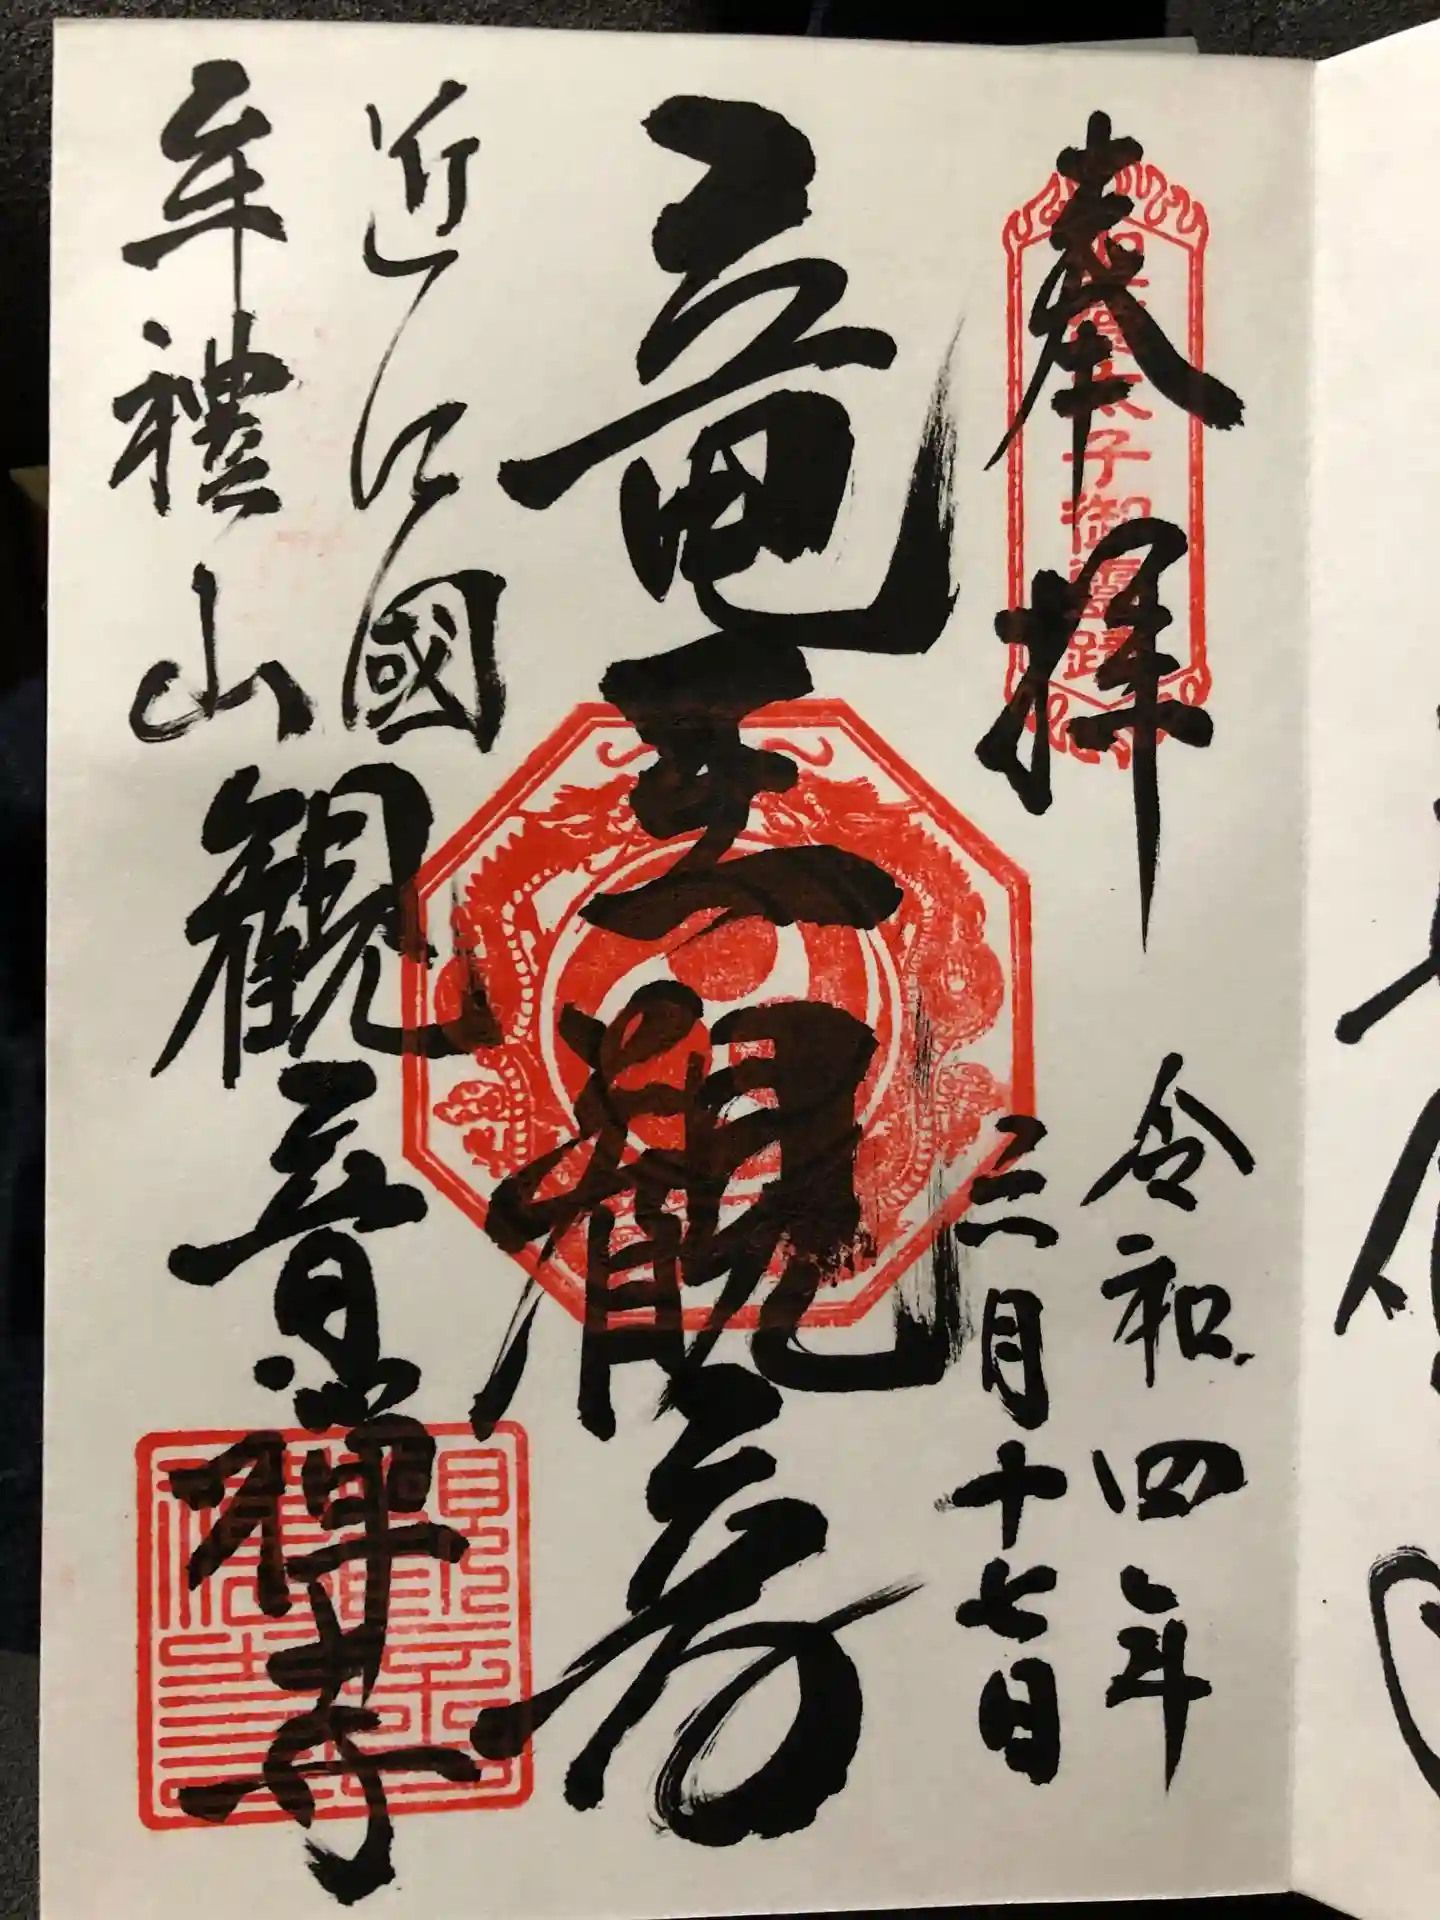 奉拝
聖徳太子御霊跡
令和四年
三月十七日
竜王観音
近江國
牟禮山
観音禅寺